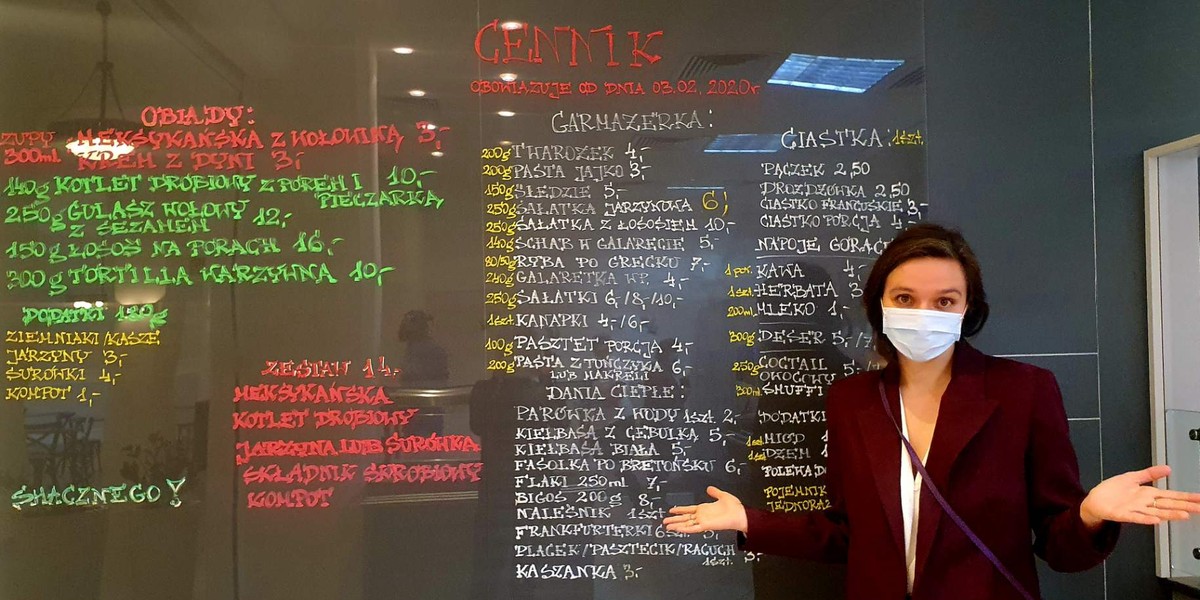 CENNIK
OBOWIĄZUJE OD DNIA 03.02.2020r
OBIADY:
ZUPY MEKSYKAŃSKA Z WOŁOWINĄ 3,-
300ml KREM Z DYNI 3,-
140g KOTLET DROBIOWY Z POREM I 10,-
PIECZARKĄ
250g GULASZ WOŁOWY 12,-
Z SEZAMEM
150g ŁOSOŚ NA PORACH 16,-
300g TORTILLA WARZYWNA 10,-
DODATKI 120g
ZIEMNIAKI/KASZE
JARZYNY 3,-
SURÓWKI 4,-
KOMPOT 1,-
SMACZNEGO!
ZESTAW 14,-
MEKSYKAŃSKA
KOTLET DROBIOWY
JARZYNA LUB SURÓWKA
SKŁADNIK SKROBIOWY
KOMPOT
GARMAŻERKA:
200g TWAROŻEK 4,-
200g PASTA JAJKO 3,-
150g ŚLEDZIE 5,-
250g SAŁATKA JARZYNOWA 6,-
250g SAŁATKA Z ŁOSOSIEM 10,-
140g SCHAB W GALARECIE 5,-
80/50g RYBA PO GRECKU 7,-
240g GALARETKA WP. 4,-
250g SAŁATKI 6,-/8,-/10,-
1szt. KANAPKI 4,-/6,-
100g PASZTET PORCJA 4,-
200g PASTA Z TUŃCZYKA 6,-
LUB MAKRELI
DANIA CIEPŁE:
PARÓWKA Z WODY 1szt. 2,-
KIEŁBASA Z CEBULKĄ 5,-
KIEŁBASA BIAŁA 5,-
FASOLKA PO BRETOŃSKU 6,-
FLAKI 250ml 7,-
BIGOS 200g 8,-
NALEŚNIK 1szt
FRANKFURTERKI 6szt. 5,-
PLACEK/PASZTECIK/RACUCH 3,-
1szt.
KASZANKA 3,-
CIASTKA: 1szt.
PĄCZEK 2,50
DROŻDŻÓWKA 2,50
CIASTKO FRANCUSKIE 3,-
CIASTKO PORCJA 4,-
NAPOJE GORĄC
1 por. KAWA 4,-
1szt. HERBATA 3
200ml MLEKO 1,-
300g DESER 5,-/7
250g COCTAIL
OWOCOWY
300ml SMUFFI
DODATKI
1szt MIÓD 1
1szt DŻEM 1
POLEWA DO
POJEMNIK
JEDNORAZ